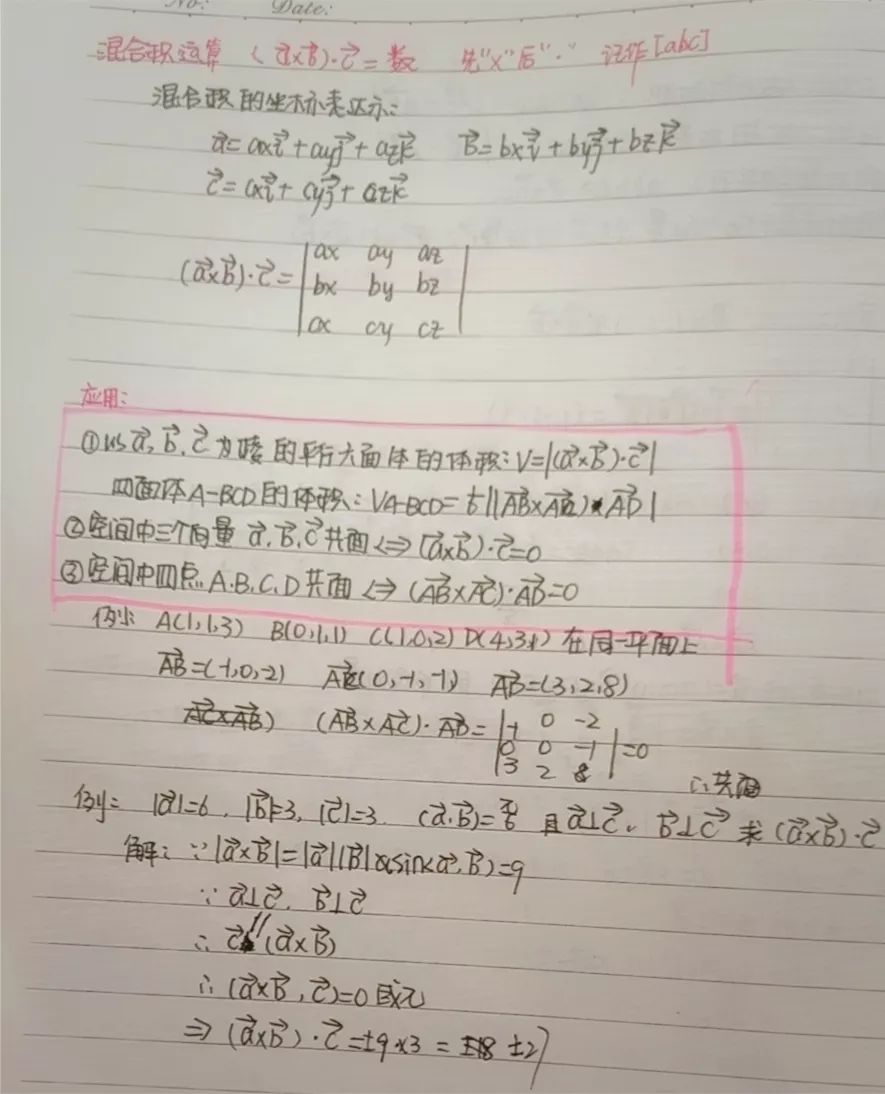 No: Date:
混合积运算 (a⃗×b⃗)·c⃗=数 先"×"后"·" 记作[abc]
混合积的坐标表达示:
a⃗=axi⃗+ayj⃗+azk⃗ b⃗=bxi⃗+byj⃗+bzk⃗
c⃗=cxi⃗+cyj⃗+czk⃗
(a⃗×b⃗)·c⃗=| ax ay az |
| bx by bz |
| cx cy cz |
应用:
①以a⃗,b⃗,c⃗为棱的平行六面体的体积:V=|(a⃗×b⃗)·c⃗|
四面体A-BCD的体积:VA-BCD=1/6|(AB⃗×AC⃗)·AD⃗|
②空间中三个向量a⃗,b⃗,c⃗共面<=>(a⃗×b⃗)·c⃗=0
③空间中四点A.B.C.D共面<=>(AB⃗×AC⃗)·AD⃗=0
例1: A(1,1,3) B(0,1,1) C(1,0,2) D(4,3,11)在同一平面上
AB⃗=(-1,0,-2) AC⃗(0,-1,-1) AD⃗=(3,2,8)
AC⃗×AB⃗) (AB⃗×AC⃗)·AD⃗=| -1 0 -2 |
| 0 0 -1 |=0
| 3 2 8 |
∴共面
例2: |a⃗|=6,|b⃗|=3,|c⃗|=3.(a⃗,b⃗)=π/6 且a⃗⊥c⃗,b⃗⊥c⃗ 求(a⃗×b⃗)·c⃗
解:∵|a⃗×b⃗|=|a⃗||b⃗|sin<a⃗,b⃗)=9
∵a⃗⊥c⃗,b⃗⊥c⃗
∴c⃗//(a⃗×b⃗)
∴(a⃗×b⃗,c⃗)=0或π
=>(a⃗×b⃗)·c⃗=±9×3=±18 ±27